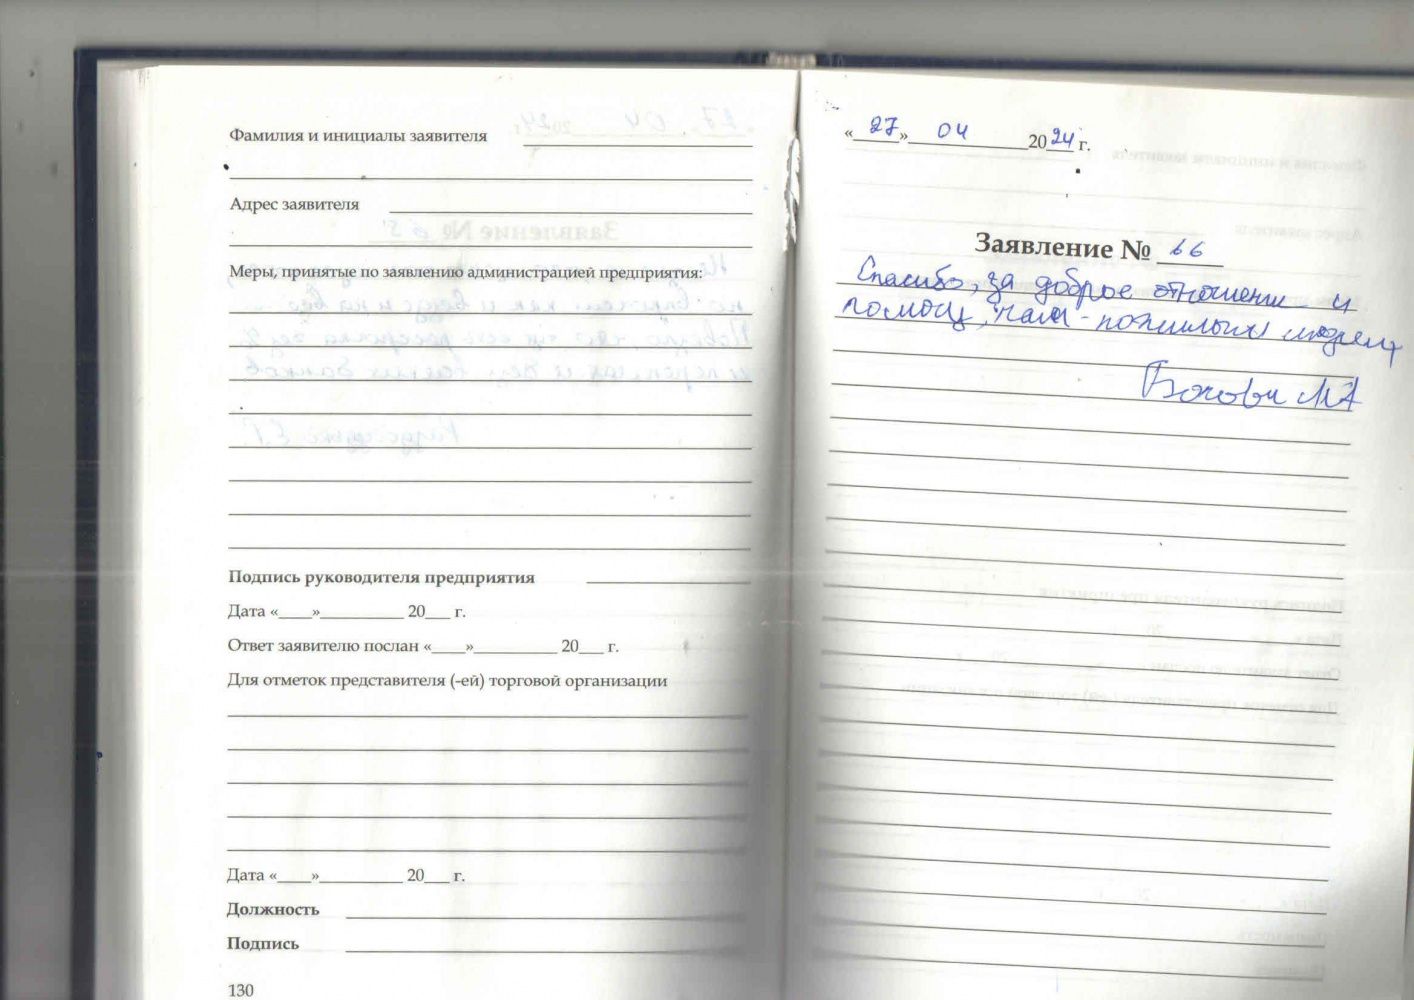 Фамилия и инициалы заявителя
Адрес заявителя
Меры, принятые по заявлению администрацией предприятия:
Подпись руководителя предприятия
Дата «____»__________ 20___ г.
Ответ заявителю послан «____»__________ 20___ г.
Для отметок представителя (-ей) торговой организации
Дата «____»__________ 20___ г.
Должность
Подпись
130
«27» 04 2024 г.
Заявление № 66
Спасибо, за доброе отношение и
помощь, нам - пожилым людям